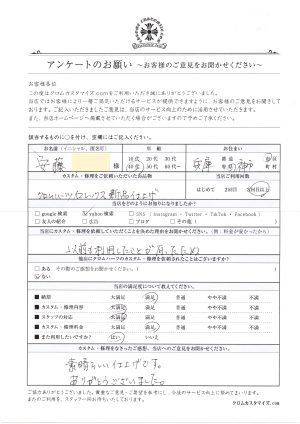 アンケートのお願い ～お客様のご意見をお聞かせください～
お客様各位
この度はクロムカスタマイズ.comをご利用いただき誠にありがとうございました。
当店ではお客様により一層ご満足いただけるサービスが提供できますように、お客様のご意見をお聞きしております。ご記入いただきましたご意見は、当店のサービス向上のために活用させていただきます。
また、当店ホームページへ掲載させていただく場合がございますので予めご了承ください。
該当するものに○を付け、空欄にはご記入ください。
お名前（イニシャル、匿名可） 年齢 お住まい
安藤 様 10代 20代 30代 兵庫 都道府県 神戸 市区町村
40代 50代
カスタム・修理をご依頼いただいた品物 当店ご利用回数
クロムハーツ ロレックス 新品仕上げ はじめて 2回目 3回目以上
当店をどのようにお知りになりましたか？
□google検索 ☑yahoo検索 □SNS（Instagram・Twitter・TikTok・Facebook）
□友人の紹介 □広告 □ブログ □その他（ ）
当店にカスタム・修理を依頼していただいたことを決めた理由をお聞かせください。（例：料金が安かったから）
以前も利用したことが有ったため
他店にクロムハーツのカスタム・修理を依頼されたことはございますか？
□ある その際のご感想をお聞かせください。（ ）
☑ない
当店の満足度について教えてください。
■納期 大満足 満足 普通 やや不満 不満
■カスタム・修理内容 大満足 満足 普通 やや不満 不満
■スタッフの対応 大満足 満足 普通 やや不満 不満
■カスタム・修理料金 大満足 満足 普通 やや不満 不満
■また利用したいですか？ はい いいえ
カスタム・修理をなさったご感想、当店へのご意見をお聞かせください。
素晴らしい仕上げです。
ありがとうございました。
ご協力ありがとうございました。貴重なご意見・ご要望を参考にし、今後のサービス向上に努めてまいります。
またのご利用を、スタッフ一同お待ちいたしております。
クロムカスタマイズ.com